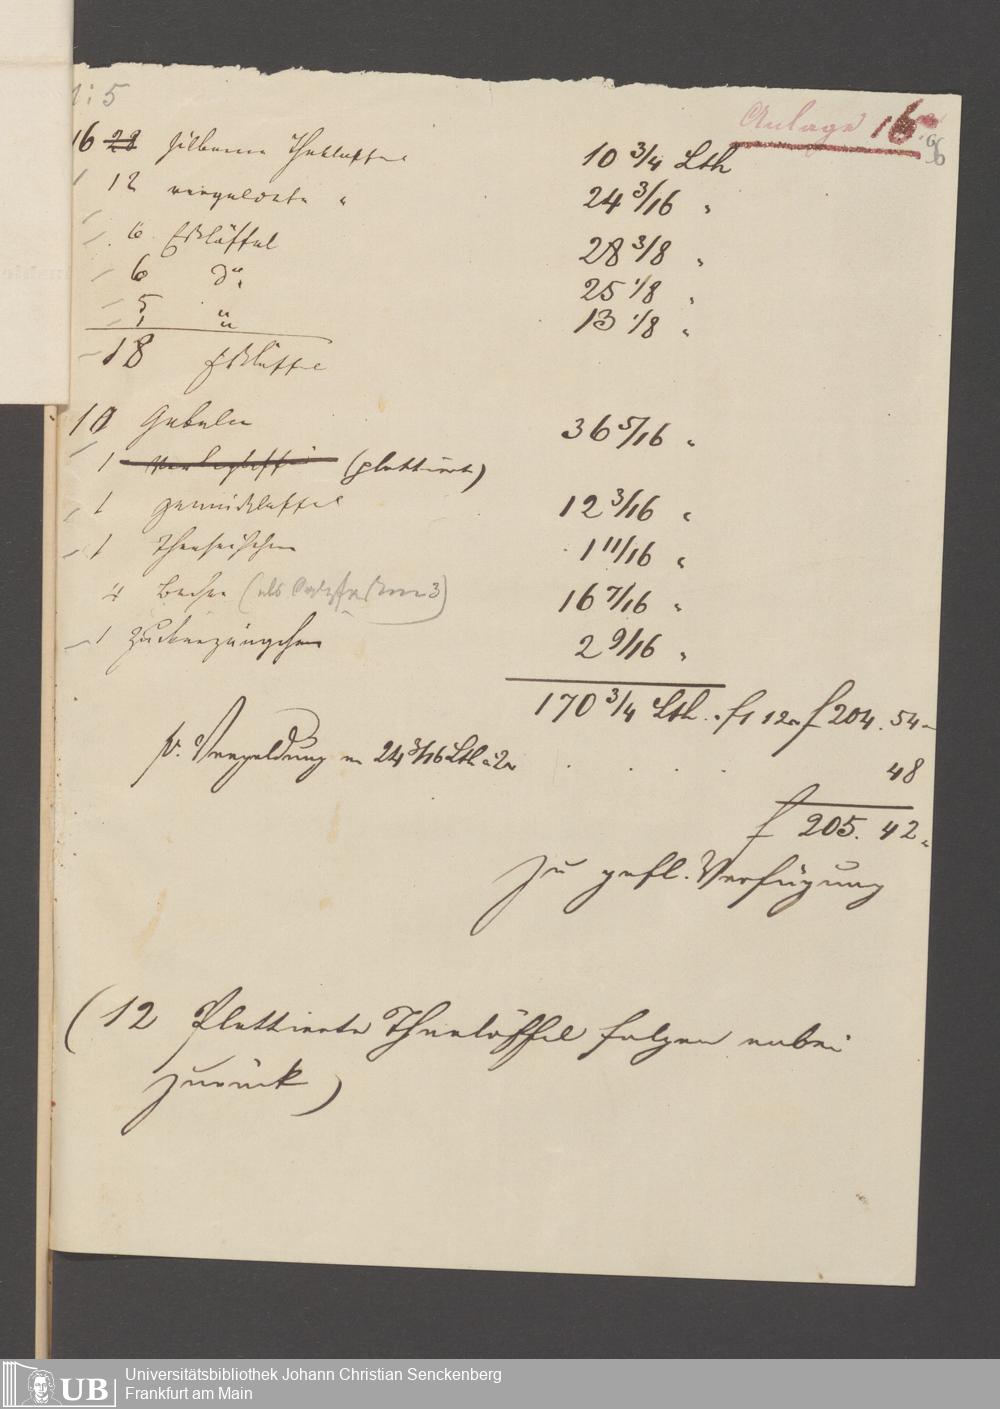 1:5
Anlage 16
16 28 silberne Theelöffel 10 3/4 Lth
12 vergoldete " 24 3/16 "
6 Eßlöffel 28 3/8 "
6 do 25 1/8 "
5 " 13 1/8 "
1 "
18 Eßlöffel
10 Gabeln 36 5/16 "
1 (plattiert)
1 Gemüßlöffel 12 3/16 "
1 Theeseihchen 1 11/16 "
4 Becher (als 3) 16 7/16 "
1 Zuckerzängchen 2 9/16 "
170 3/4 Lth. f 1 12 x f 204. 54 -
p. Vergoldung v. 24 3/16 Lth à 2 x . . . . 48
f 205. 42 "
zu gefl. Verfügung
(12 Plattierte Theelöffel folgen anbei
zurück)
Universitätsbibliothek Johann Christian Senckenberg
Frankfurt am Main
UB